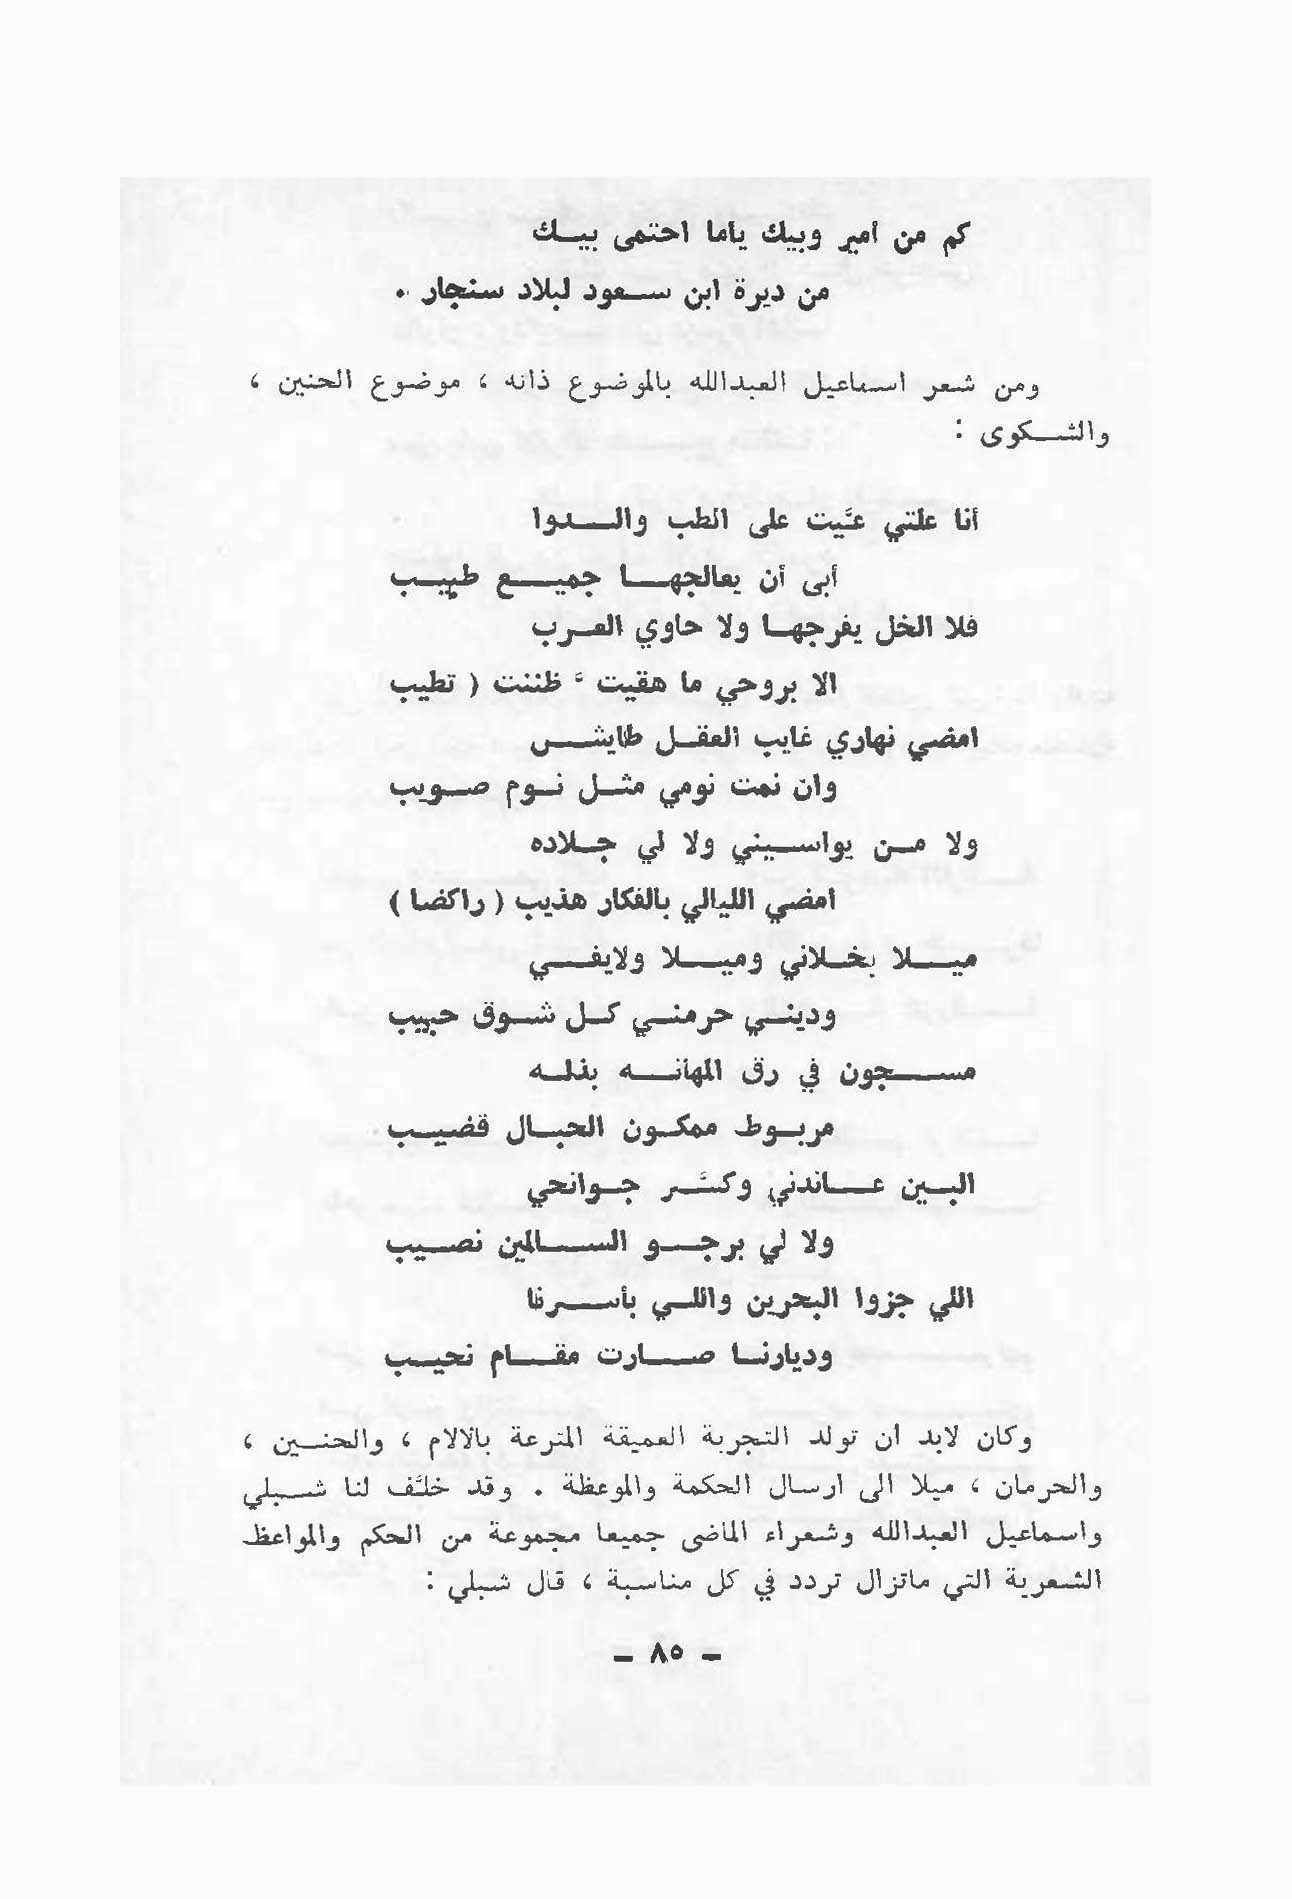 كم من امير وبيك ياما احتمى بيك
من ديرة ابن سعود لبلاد سنجار .
ومن شعر اسماعيل العبدالله بالموضوع ذاته ، موضوع الحنين ،
والشكوى :
أنا علتي عيَّت على الطب والدوا
أبى أن يعالجها جميع طبيب
فلا الخل يفرجها ولا حاوي العرب
الا بروحي ما هقيت " ظننت ( تطيب
امضي نهاري غايب العقل طايش
وان نمت نومي مثل نوم صويب
ولا من يواسيني ولا لي جلاده
امضي الليالي بالفكار هذيب ( راكضا )
ميلا بخلاني وميلا ولايفي
وديني حرمني كل شوق حبيب
مسجون في رق المهانه بذله
مربوط ممكون الحبال قضيب
البين عاندني وكسَّر جوانحي
ولا لي برجو السالمين نصيب
اللي جزوا البحرين واللي بأسرنا
وديارنا صارت مقام نحيب
وكان لابد ان تولد التجربة العميقة المترعة بالالام ، والحنين ،
والحرمان ، ميلا الى ارسال الحكمة والموعظة . وقد خلَّف لنا شبلي
واسماعيل العبدالله وشعراء الماضى جميعا مجموعة من الحكم والمواعظ
الشعرية التي ماتزال تردد في كل مناسبة ، قال شبلي :
- ٨٥ -